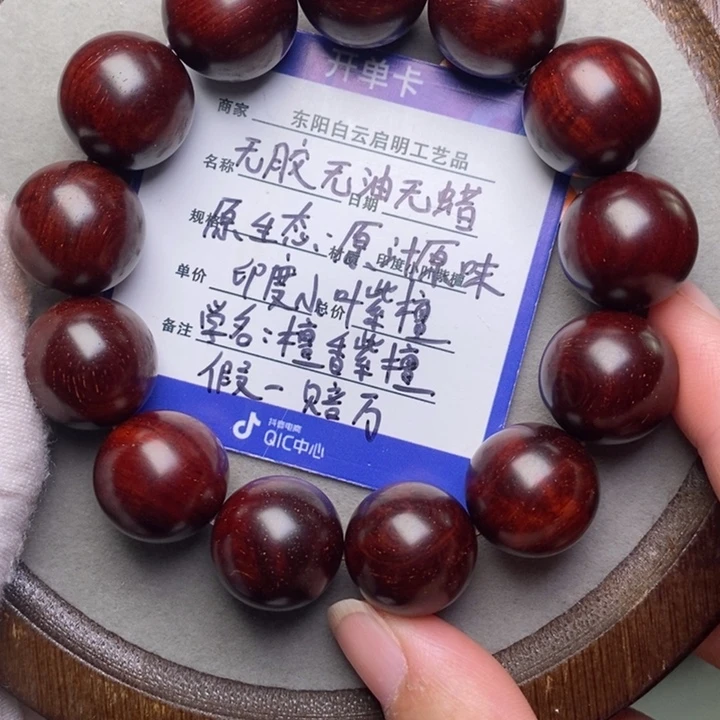 开单卡
商家 东阳白云启明工艺品
名称 无胶无油无蜡
日期
规格 原生态:原汁原味
材质 印度小叶紫檀
单价 印度小叶紫檀
总价
备注 学名:檀香紫檀
假一赔万
抖音电商
QIC中心